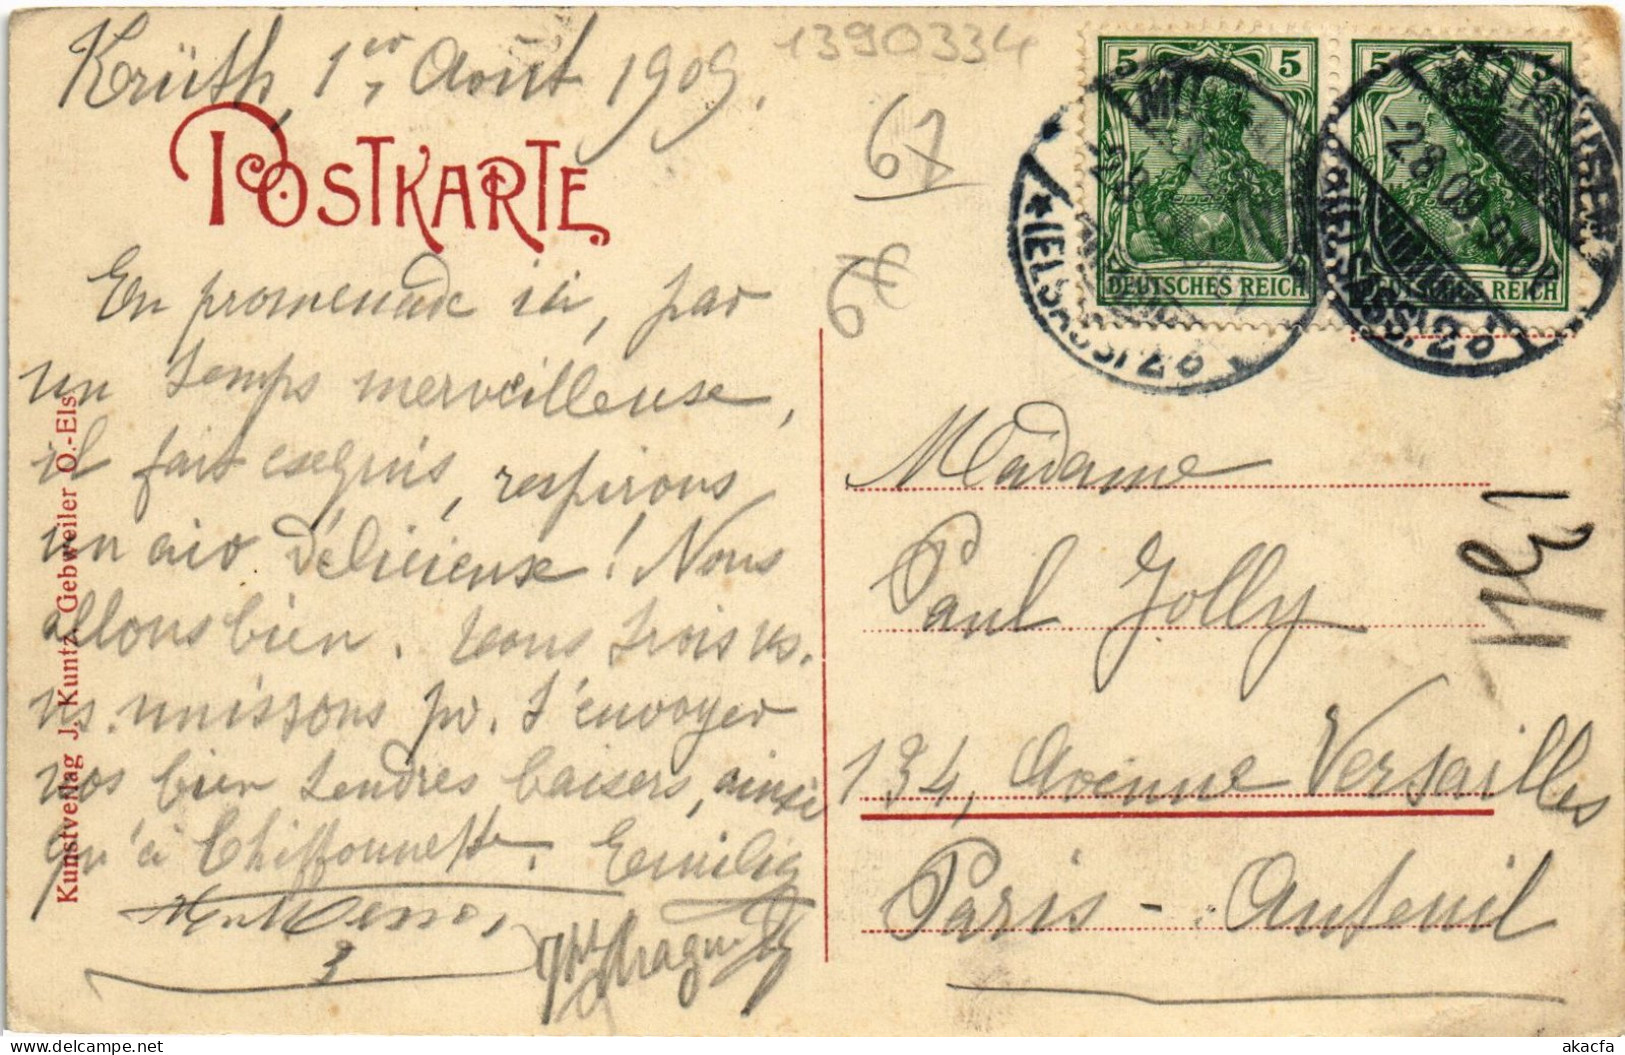 1390334
Krüth, 1er Août 1909.
67
6€
POSTKARTE
5 5
DEUTSCHES REICH
5 5
DEUTSCHES REICH
MÜLHAUSEN
-2.8.09.9-10
*(ELSASS) 2b
(ELSASS) 2b
En promenade ici, par
un temps merveilleuse,
il fait exquis, respirons
un air délicieuse! Nous
allons bien. Tous trois ns.
ns. unissons pr. t'envoyer
nos bien tendres baisers, ainsi
qu'à Chiffonnette. Emilie
Madame
Paul Jolly
134, Avenue Versailles
Paris - Auteuil
Kunstverlag J. Kuntz, Gebweiler O.-Els.
akacfa